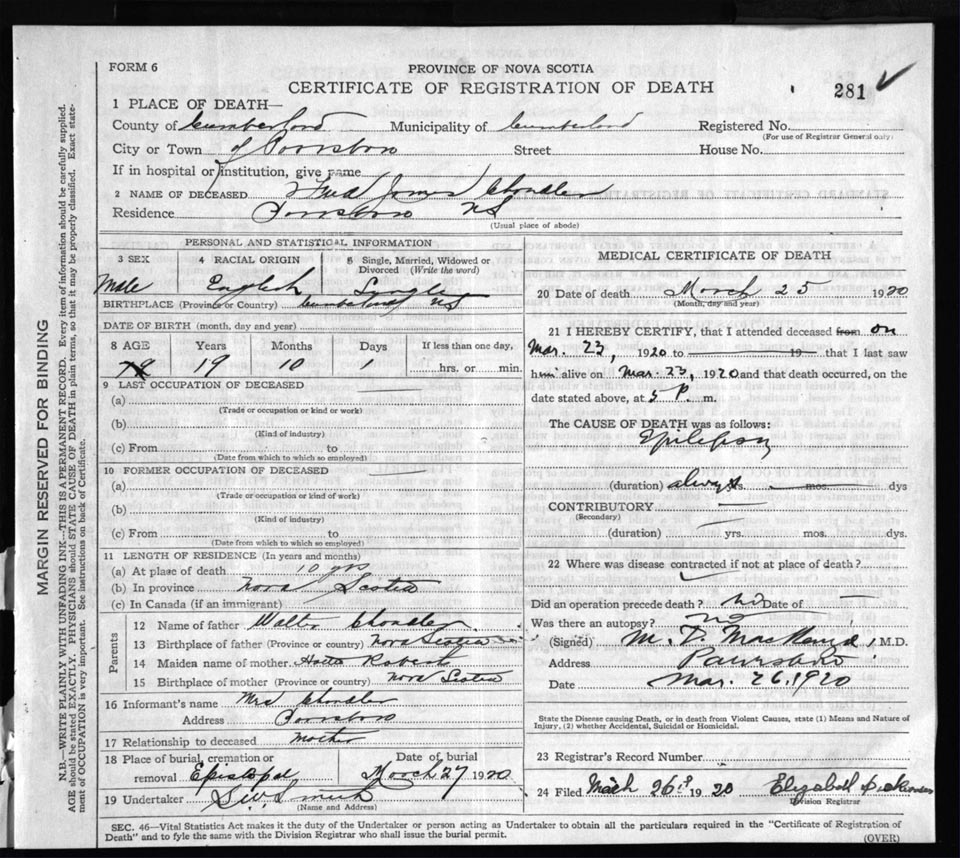 FORM 6
PROVINCE OF NOVA SCOTIA
CERTIFICATE OF REGISTRATION OF DEATH
281
1 PLACE OF DEATH—
County of Cumberland Municipality of Cumberland Registered No.
(For use of Registrar General only)
City or Town of Parrsboro Street House No.
If in hospital or institution, give name
2 NAME OF DECEASED Fred James Chandler
Residence Parrsboro NS
(Usual place of abode)
PERSONAL AND STATISTICAL INFORMATION
3 SEX 4 RACIAL ORIGIN 5 Single, Married, Widowed or Divorced (Write the word)
Male English Single
BIRTHPLACE (Province or Country) Cumberland NS
DATE OF BIRTH (month, day and year)
8 AGE Years Months Days If less than one day,
19 10 1 hrs. or min.
9 LAST OCCUPATION OF DECEASED
(a)
(Trade or occupation or kind or work)
(b)
(Kind of industry)
(c) From to
(Date from which to which so employed)
10 FORMER OCCUPATION OF DECEASED
(a)
(Trade or occupation or kind or work)
(b)
(Kind of industry)
(c) From to
(Date from which to which so employed)
11 LENGTH OF RESIDENCE (In years and months)
(a) At place of death 10 yrs
(b) In province Nova Scotia
(c) In Canada (if an immigrant)
Parents
12 Name of father Walter Chandler
13 Birthplace of father (Province or country) Nova Scotia
14 Maiden name of mother Robert
15 Birthplace of mother (Province or country) Nova Scotia
16 Informant's name Mrs Chandler
Address Parrsboro
17 Relationship to deceased Mother
18 Place of burial, cremation or removal Episcopal Date of burial March 27 1920
19 Undertaker
(Name and Address)
MEDICAL CERTIFICATE OF DEATH
20 Date of death March 25 1920
(Month, day and year)
21 I HEREBY CERTIFY, that I attended deceased from on
Mar. 23, 1920 to 19 that I last saw
him alive on Mar. 23, 1920 and that death occurred, on the
date stated above, at 5 P. m.
The CAUSE OF DEATH was as follows:
Epilepsy
(duration) always yrs. mos. dys
CONTRIBUTORY
(Secondary)
(duration) yrs. mos. dys.
22 Where was disease contracted if not at place of death?
Did an operation precede death? No Date of
Was there an autopsy? no
(Signed) M. D. MacKenzie, M.D.
Address Parrsboro
Date Mar. 26, 1920
State the Disease causing Death, or in death from Violent Causes, state (1) Means and Nature of
Injury, (2) whether Accidental, Suicidal or Homicidal.
23 Registrar's Record Number
24 Filed March 26th 1920 Elizabeth
Division Registrar
SEC. 46—Vital Statistics Act makes it the duty of the Undertaker or person acting as Undertaker to obtain all the particulars required in the "Certificate of Registration of
Death" and to fyle the same with the Division Registrar who shall issue the burial permit.
(OVER)
MARGIN RESERVED FOR BINDING
N.B.—WRITE PLAINLY WITH UNFADING INK—THIS IS A PERMANENT RECORD. Every item of information should be carefully supplied.
AGE should be stated EXACTLY. PHYSICIANS should STATE CAUSE OF DEATH in plain terms, so that it may be properly classified. Exact statement of OCCUPATION is very important. See instructions on back of Certificate.